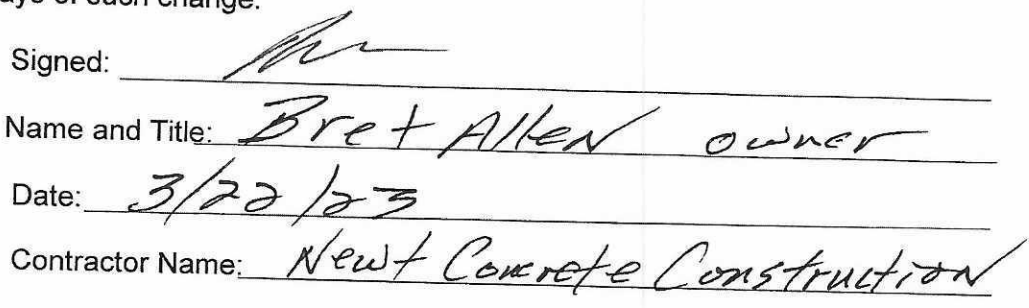 ays of such change.
Signed:
Name and Title: Bret Allen owner
Date: 3/22/23
Contractor Name: Newt Concrete Construction